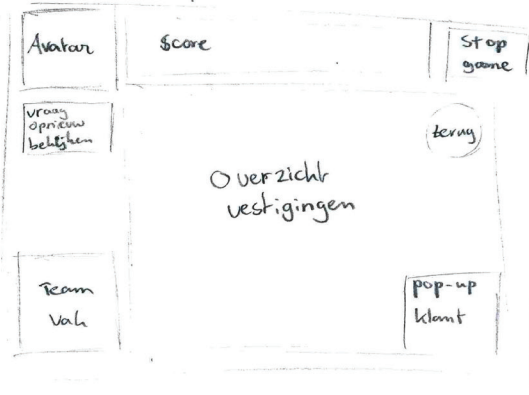 Avatar
Score
Stop
game
vraag
opnieuw
bekijken
terug
Overzicht
vestigingen
Team
Vak
pop-up
klant